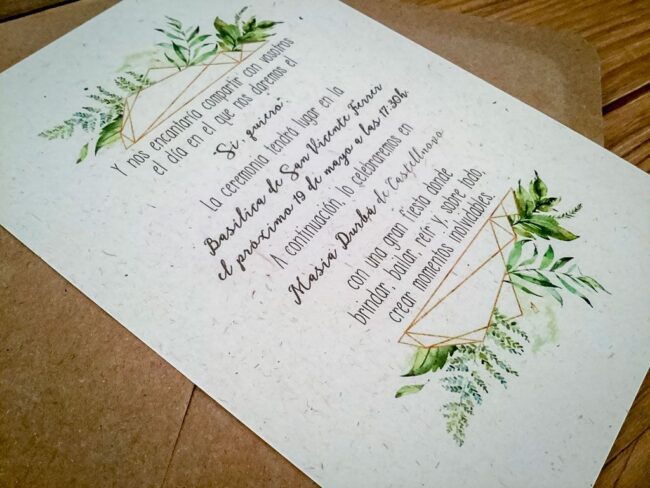 Y nos encantaría compartir con vosotros
el día en el que nos daremos el
"Sí, quiero".
La ceremonia tendrá lugar en la
Basílica de San Vicente Ferrer
el próximo 19 de mayo a las 17:30h.
A continuación, lo celebraremos en
Masía Durbá de Castellnovo
con una gran fiesta donde
brindar, bailar, reír y, sobre todo,
crear momentos inolvidables.